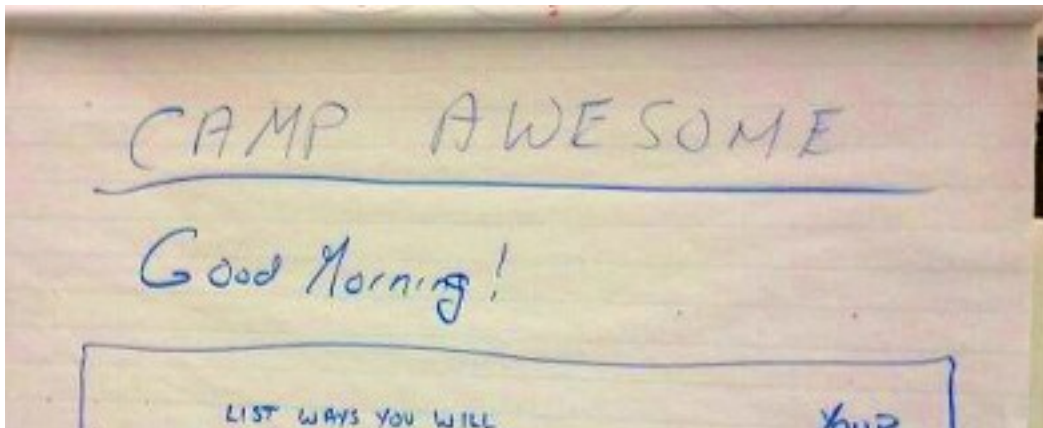 CAMP AWESOME
Good Morning!
LIST WAYS YOU WILL